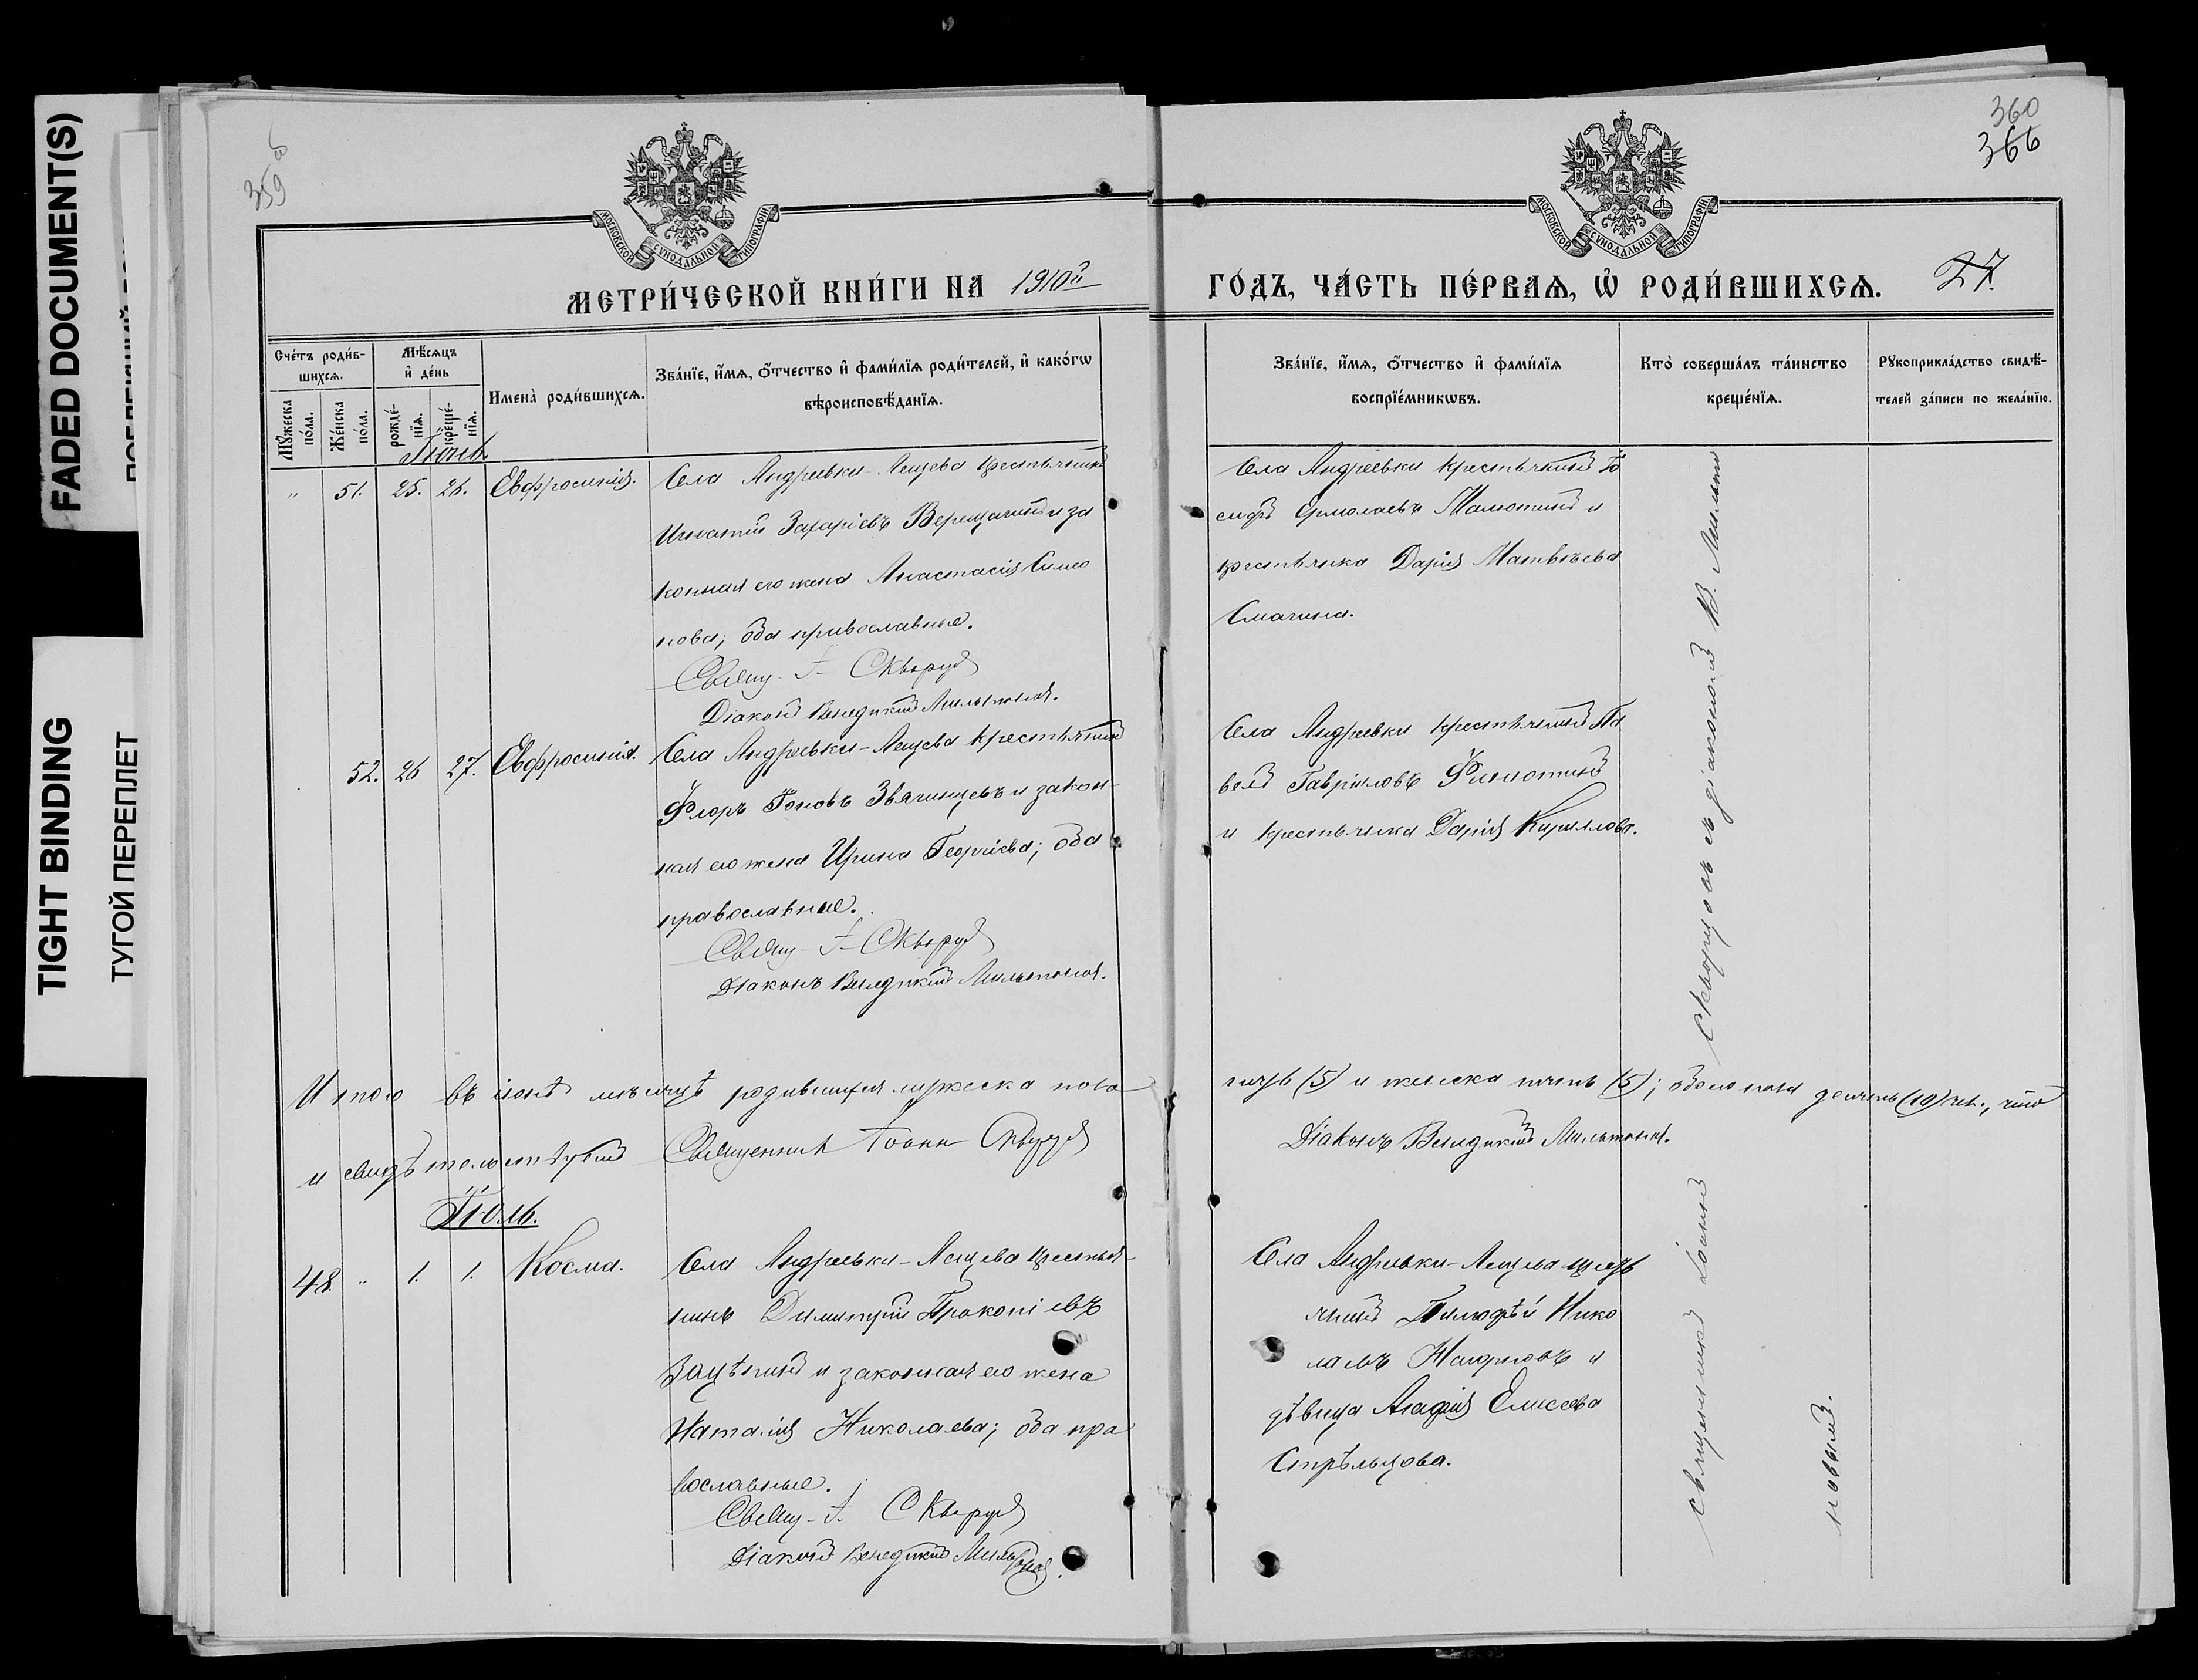 FADED DOCUMENT(S)
TIGHT BINDING
ТУГОЙ ПЕРЕПЛЕТ
359 об
360
366
МОСКОВСКОЙ СѴНОДАЛЬНОЙ ТИПОГРАФІИ
МОСКОВСКОЙ СѴНОДАЛЬНОЙ ТИПОГРАФІИ
МЕТРИ́ЧЕСКОЙ КНИ́ГИ НА 1910й
ГО́ДЪ, ЧА́СТЬ ПЕ́РВАѦ, Ѡ҆ РОДИ́ВШИХСѦ. 27.
Сче́тъ роди́в-
шихсѧ.
Мꙋ́жеска по́ла.
Же́нска по́ла.
Мѣ́сѧцъ и҆ де́нь
рожде́-
нїѧ.
креще́-
нїѧ.
Имена̀ роди́вшихсѧ.
Зва́нїе, и҆́мѧ, ѻ҆́тчество и҆ фами́лїѧ роди́телей, и҆ како́гѡ
вѣроисповѣ́данїѧ.
Зва́нїе, и҆́мѧ, ѻ҆́тчество и҆ фами́лїѧ
воспрїе́мникѡвъ.
Кто̀ соверша́лъ та́инство
креще́нїѧ.
Рꙋкоприкла́дство свидѣ́-
телей за́писи по жела́нїю.
Іюнь
" 51. 25. 26. Евфросинія.
Села Андреевки-Лещева крестьянинъ
Игнатій Захаріевъ Верещагинъ и за
конная его жена Анастасія Симео
нова; оба православные.
Свящ. І. Скворцов
Діаконъ Венедиктъ Мильтоновъ.
Села Андреевки крестьянинъ Іо
сифъ Ермолаевъ и
крестьянка Дарія Матвѣева
Смагина.
52. 26 27. Евфросинія.
Села Андреевки-Лещева крестьянинъ
Флоръ Іоновъ Звягинцевъ и закон-
ная его жена Ирина Георгіева; оба
православные.
Свящ. І. Скворцов
Діаконъ Венедиктъ Мильтоновъ.
Села Андреевки крестьянинъ Па
велъ Гавріиловъ
и крестьянка Дарія Кириллова.
Итого въ іюнѣ мѣсяцѣ родившихся мужеска пола
пять (5) и женска пять (5); обоего пола десять (10) чел., что
и свидѣтельствуемъ Священник Іоанн Скворцов
Діаконъ Венедиктъ Мильтоновъ.
Іюль.
48. " 1. 1. Косма.
Села Андреевки-Лещева крестья-
нинъ Димитрій Прокопіевъ
Зацѣпинъ и законная его жена
Наталія Николаева; оба пра
вославные.
Свящ. І. Скворцов
Діаконъ Венедиктъ Мильтоновъ.
Села Андреевки-Лещева кресть
янинъ Тимофѣй Нико
лаевъ и
дѣвица Агафія Елисеева
Стрѣльцова.
Священникъ Іоаннъ Скворцовъ съ діакономъ В. Мильто
новымъ.